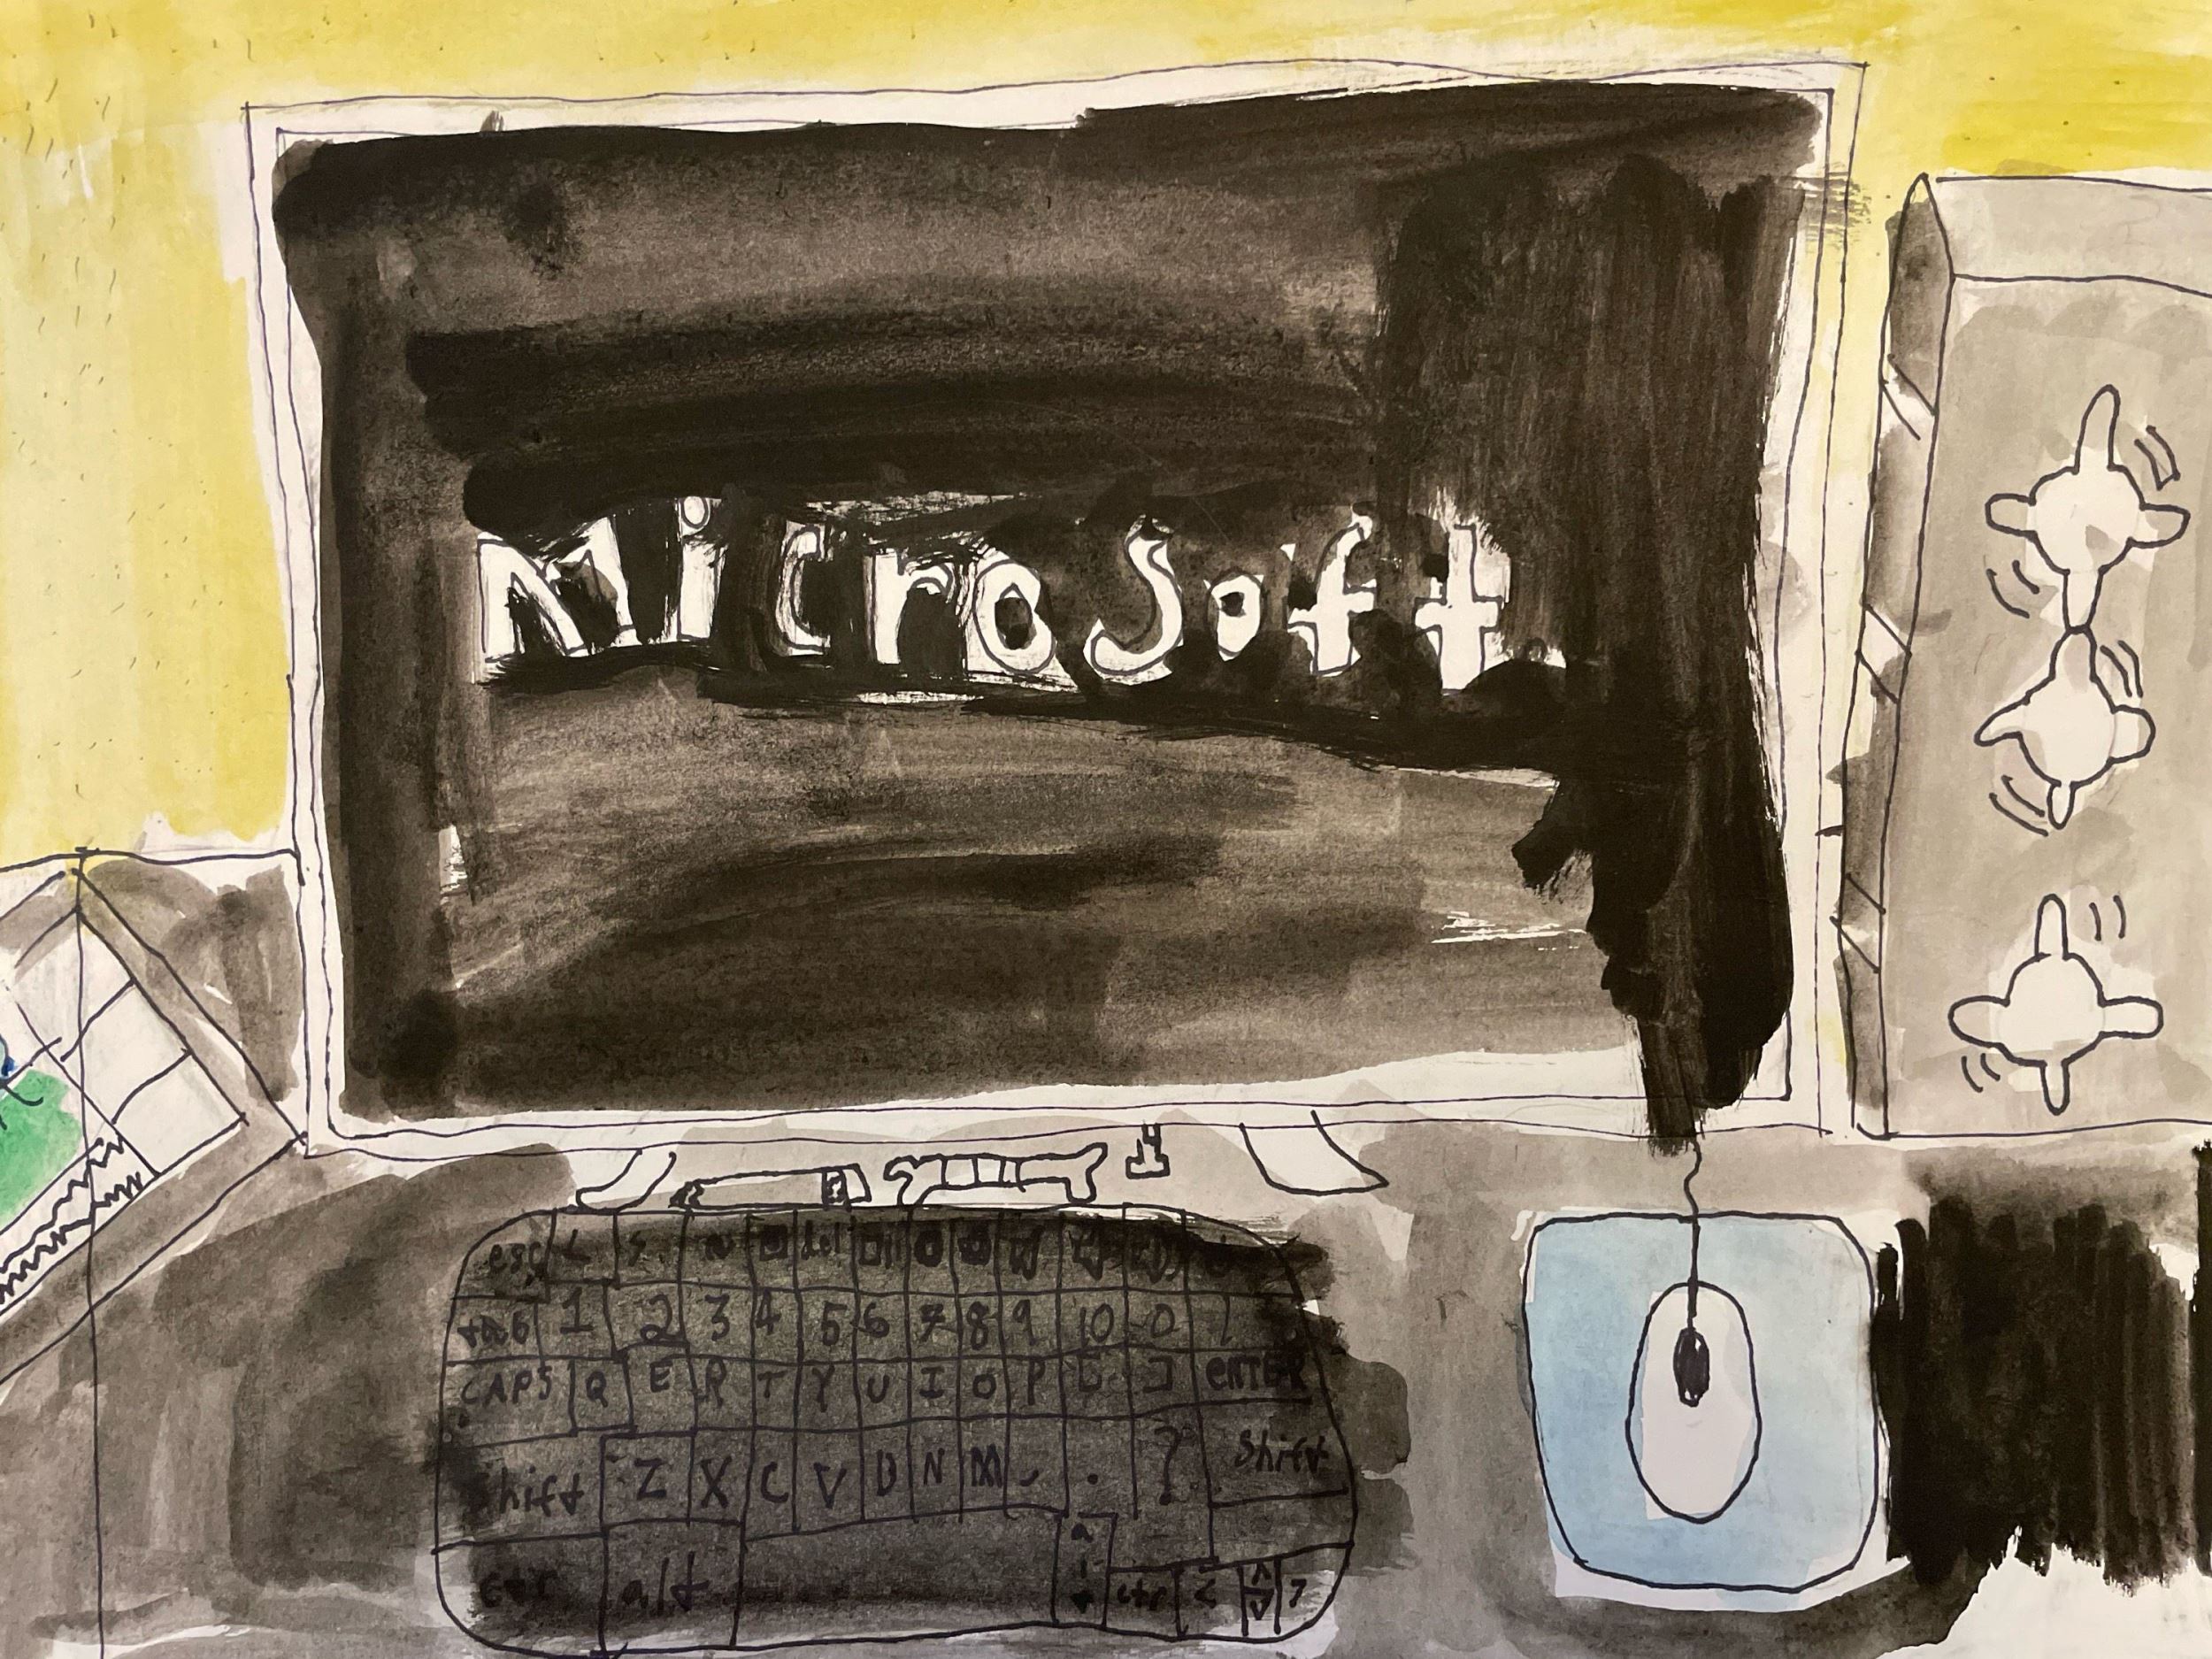 Microsoft
esc
del
tab 1 2 3 4 5 6 7 8 9 10 0
CAPS Q E R T Y U I O P [ ] ENTER
Shift Z X C V B N M , . ? Shift
alt ctr < ^ v >